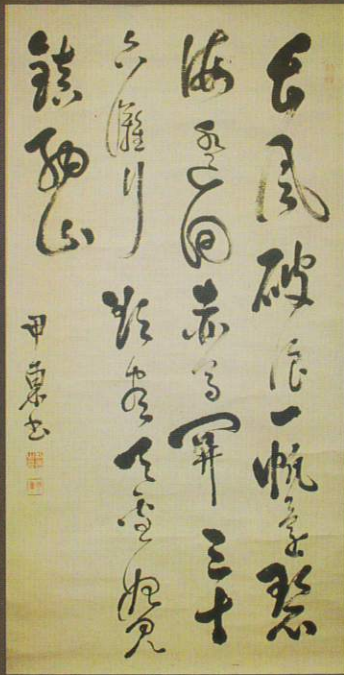 長風破浪一帆還碧
海遙回赤馬関三十
六灘行欲盡天邊始見
鎮西山
甲東書